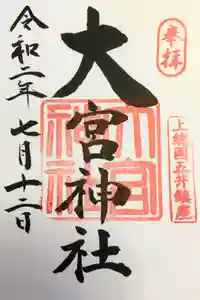 奉拝
上総國五井鎮座
大宮神社
令和二年七月十二日